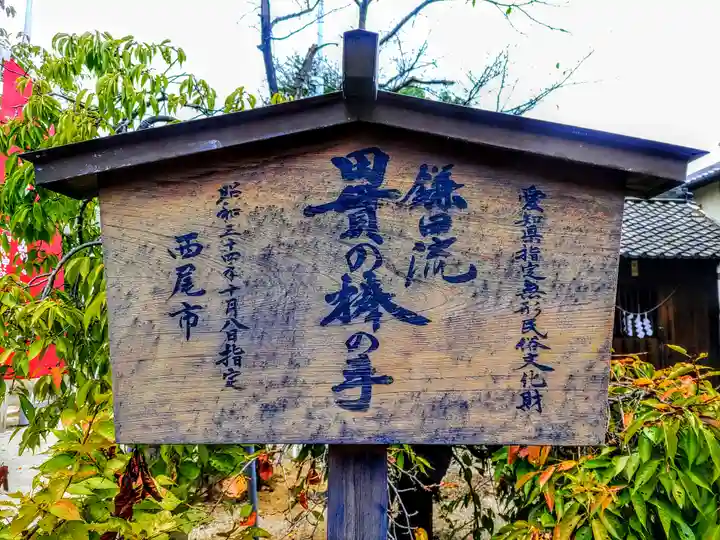 愛知県指定無形民俗文化財
鎌田流
貝吹の棒の手
昭和三十四年十月八日指定
西尾市